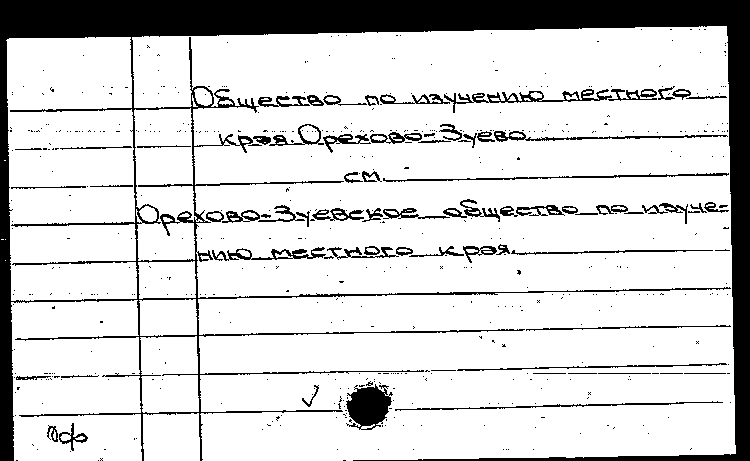 Общество по изучению местного
края. Орехово-Зуево.
см.
Орехово-Зуевское общество по изуче-
нию местного края.